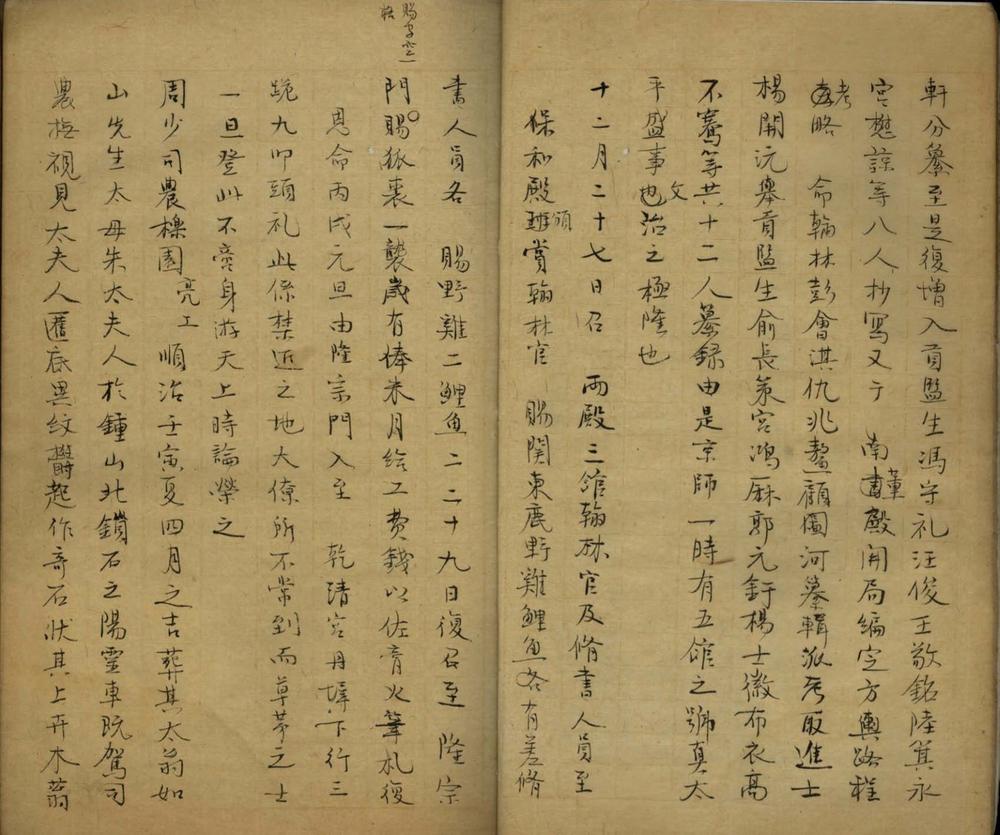 軒分纂至是復增入貢監生馮守礼汪俊王敬銘陸箕永
宮懋諒等八人抄写又于　南薰殿開局編定方輿路程
考略　命翰林彭會淇仇兆鰲顧圖河纂輯派否取進士
楊開沅舉貢監生俞長策宮鴻厤郭元釪楊士徽布衣高
不騫等共十二人纂録由是京師一時有五館之號真太
平盛事文治之極隆也
十二月二十七日召　兩殿三館翰林官及脩書人員至
保和殿頒賞翰林官　賜関東鹿野雞鯉魚各有差脩
書人員各　賜野雞二鯉魚二二十九日復召至　隆宗
門賜狐裘一襲歲有俸米月给工費錢以佐膏火筆札復
賜字空一
恩命丙戌元旦由隆宗門入至　乾清宮丹墀下行三
跪九叩頭礼此係禁近之地大僚所不常到而草茅之士
一旦登此不啻身游天上時論榮之
周少司農櫟園亮工　順治壬寅夏四月之吉葬其太翁如
山先生太母朱太夫人於鍾山北鎖石之陽靈車既駕司
農撫視見太夫人匶底異紋欝起作奇石狀其上卉木蓊